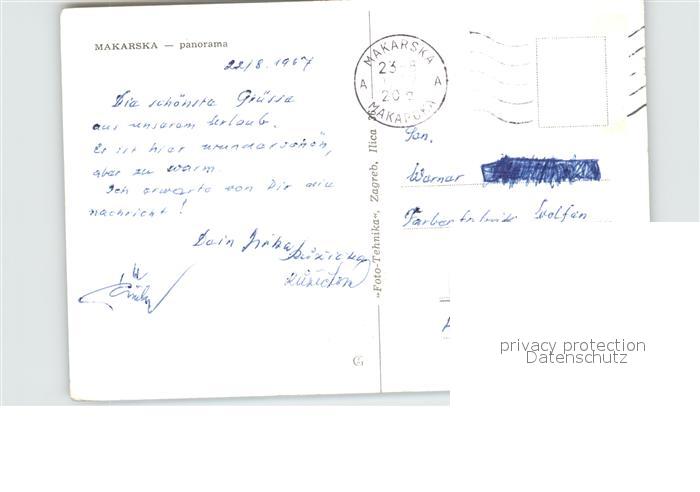 MAKARSKA — panorama
22/8. 1967
Die schönste Grüsse
aus unserem Urlaub.
Es ist hier wunderschön,
aber zu warm.
Ich erwarte von Dir eine
nachricht!
Dein
»Foto-Tehnika«, Zagreb, Ilica
MAKARSKA
23
A A
20
MAKARSKA
Werner
privacy protection
Datenschutz